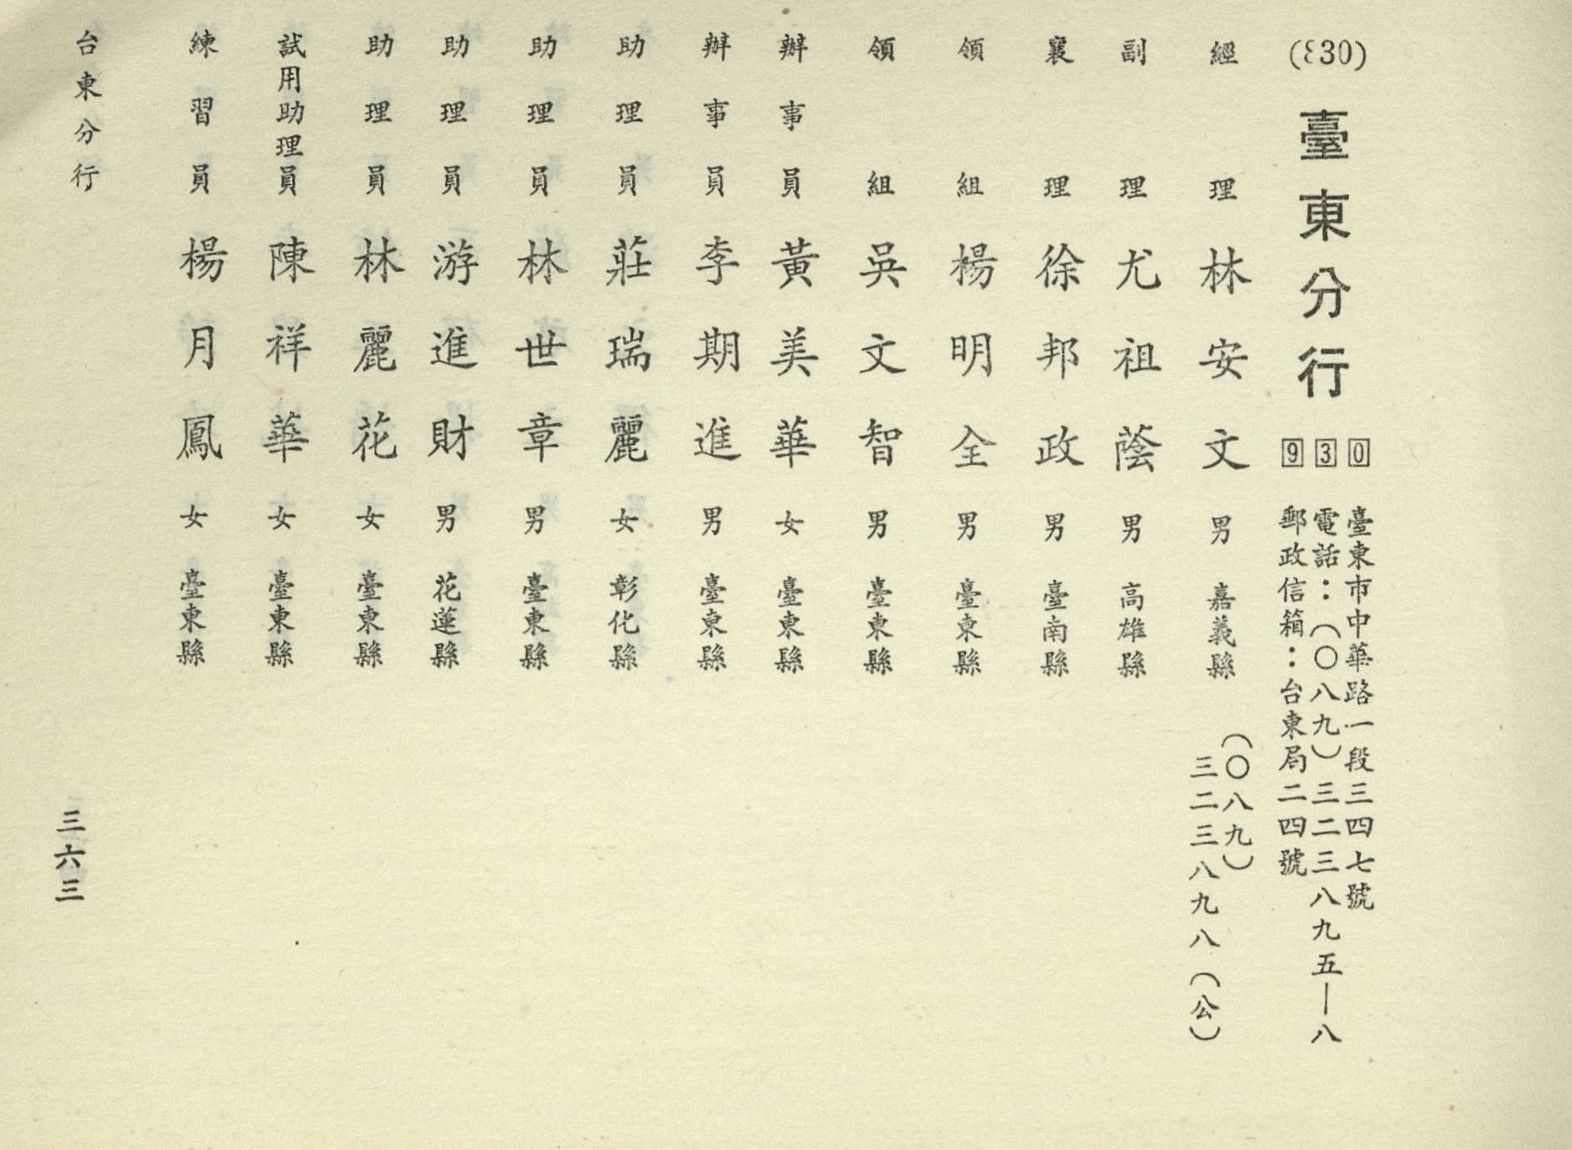 (830)
臺東分行
930
臺東市中華路一段三四七號
電話：（〇八九）三二三八九五—八
郵政信箱：台東局二四號
經理 林安文 男 嘉義縣 （〇八九）三二三八九八（公）
副理 尤祖蔭 男 高雄縣
襄理 徐邦政 男 臺南縣
領組 楊明全 男 臺東縣
領組 吳文智 男 臺東縣
辦事員 黃美華 女 臺東縣
辦事員 李期進 男 臺東縣
助理員 莊瑞麗 女 彰化縣
助理員 林世章 男 臺東縣
助理員 游進財 男 花蓮縣
助理員 林麗花 女 臺東縣
試用助理員 陳祥華 女 臺東縣
練習員 楊月鳳 女 臺東縣
台東分行
三六三